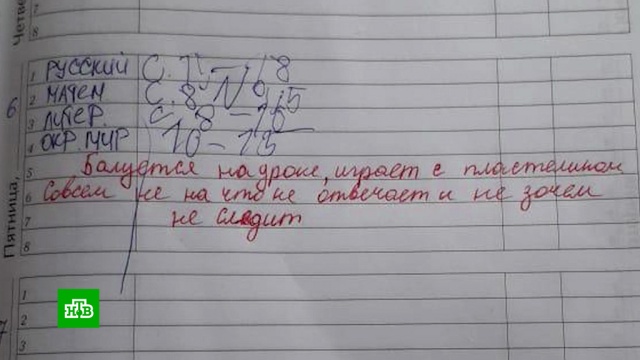 Четве
7
8
Пятница, 6
1 РУССКИЙ С.
2 МАТЕМ С. 8, № 9,
3 ЛИТЕР. С. 8 –
4 ОКР. МИР 10 – 13
5 Балуется на уроке, играет с пластелином
6 Совсем не на что не отвечает и не зачем
7 не следит
8
7
1
2
3
НТВ